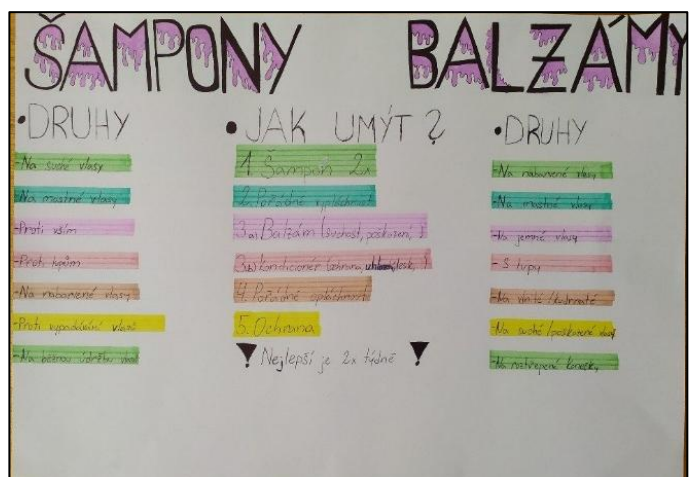 ŠAMPONY
BALZÁMY
•DRUHY
-Na suché vlasy
-Na mastné vlasy
-Proti vším
-Proti lupům
-Na nabarvené vlasy
-Proti vypadávání vlasů
-Na běžnou údržbu vlasů
•JAK UMÝT?
1. Šampón 2x
2. Pořádně vypláchnout
3a) Balzám (suchost, poškození, )
3b) Kondicionér (ochrana, lesk, )
4. Pořádně opláchnout
5. Ochrana
! Nejlepší je 2x týdně !
•DRUHY
-Na nabarvené vlasy
-Na mastné vlasy
-Na jemné vlasy
- S lupy
-Na vlnité/kudrnaté
-Na suché/poškozené vlasy
-Na roztřepené konečky